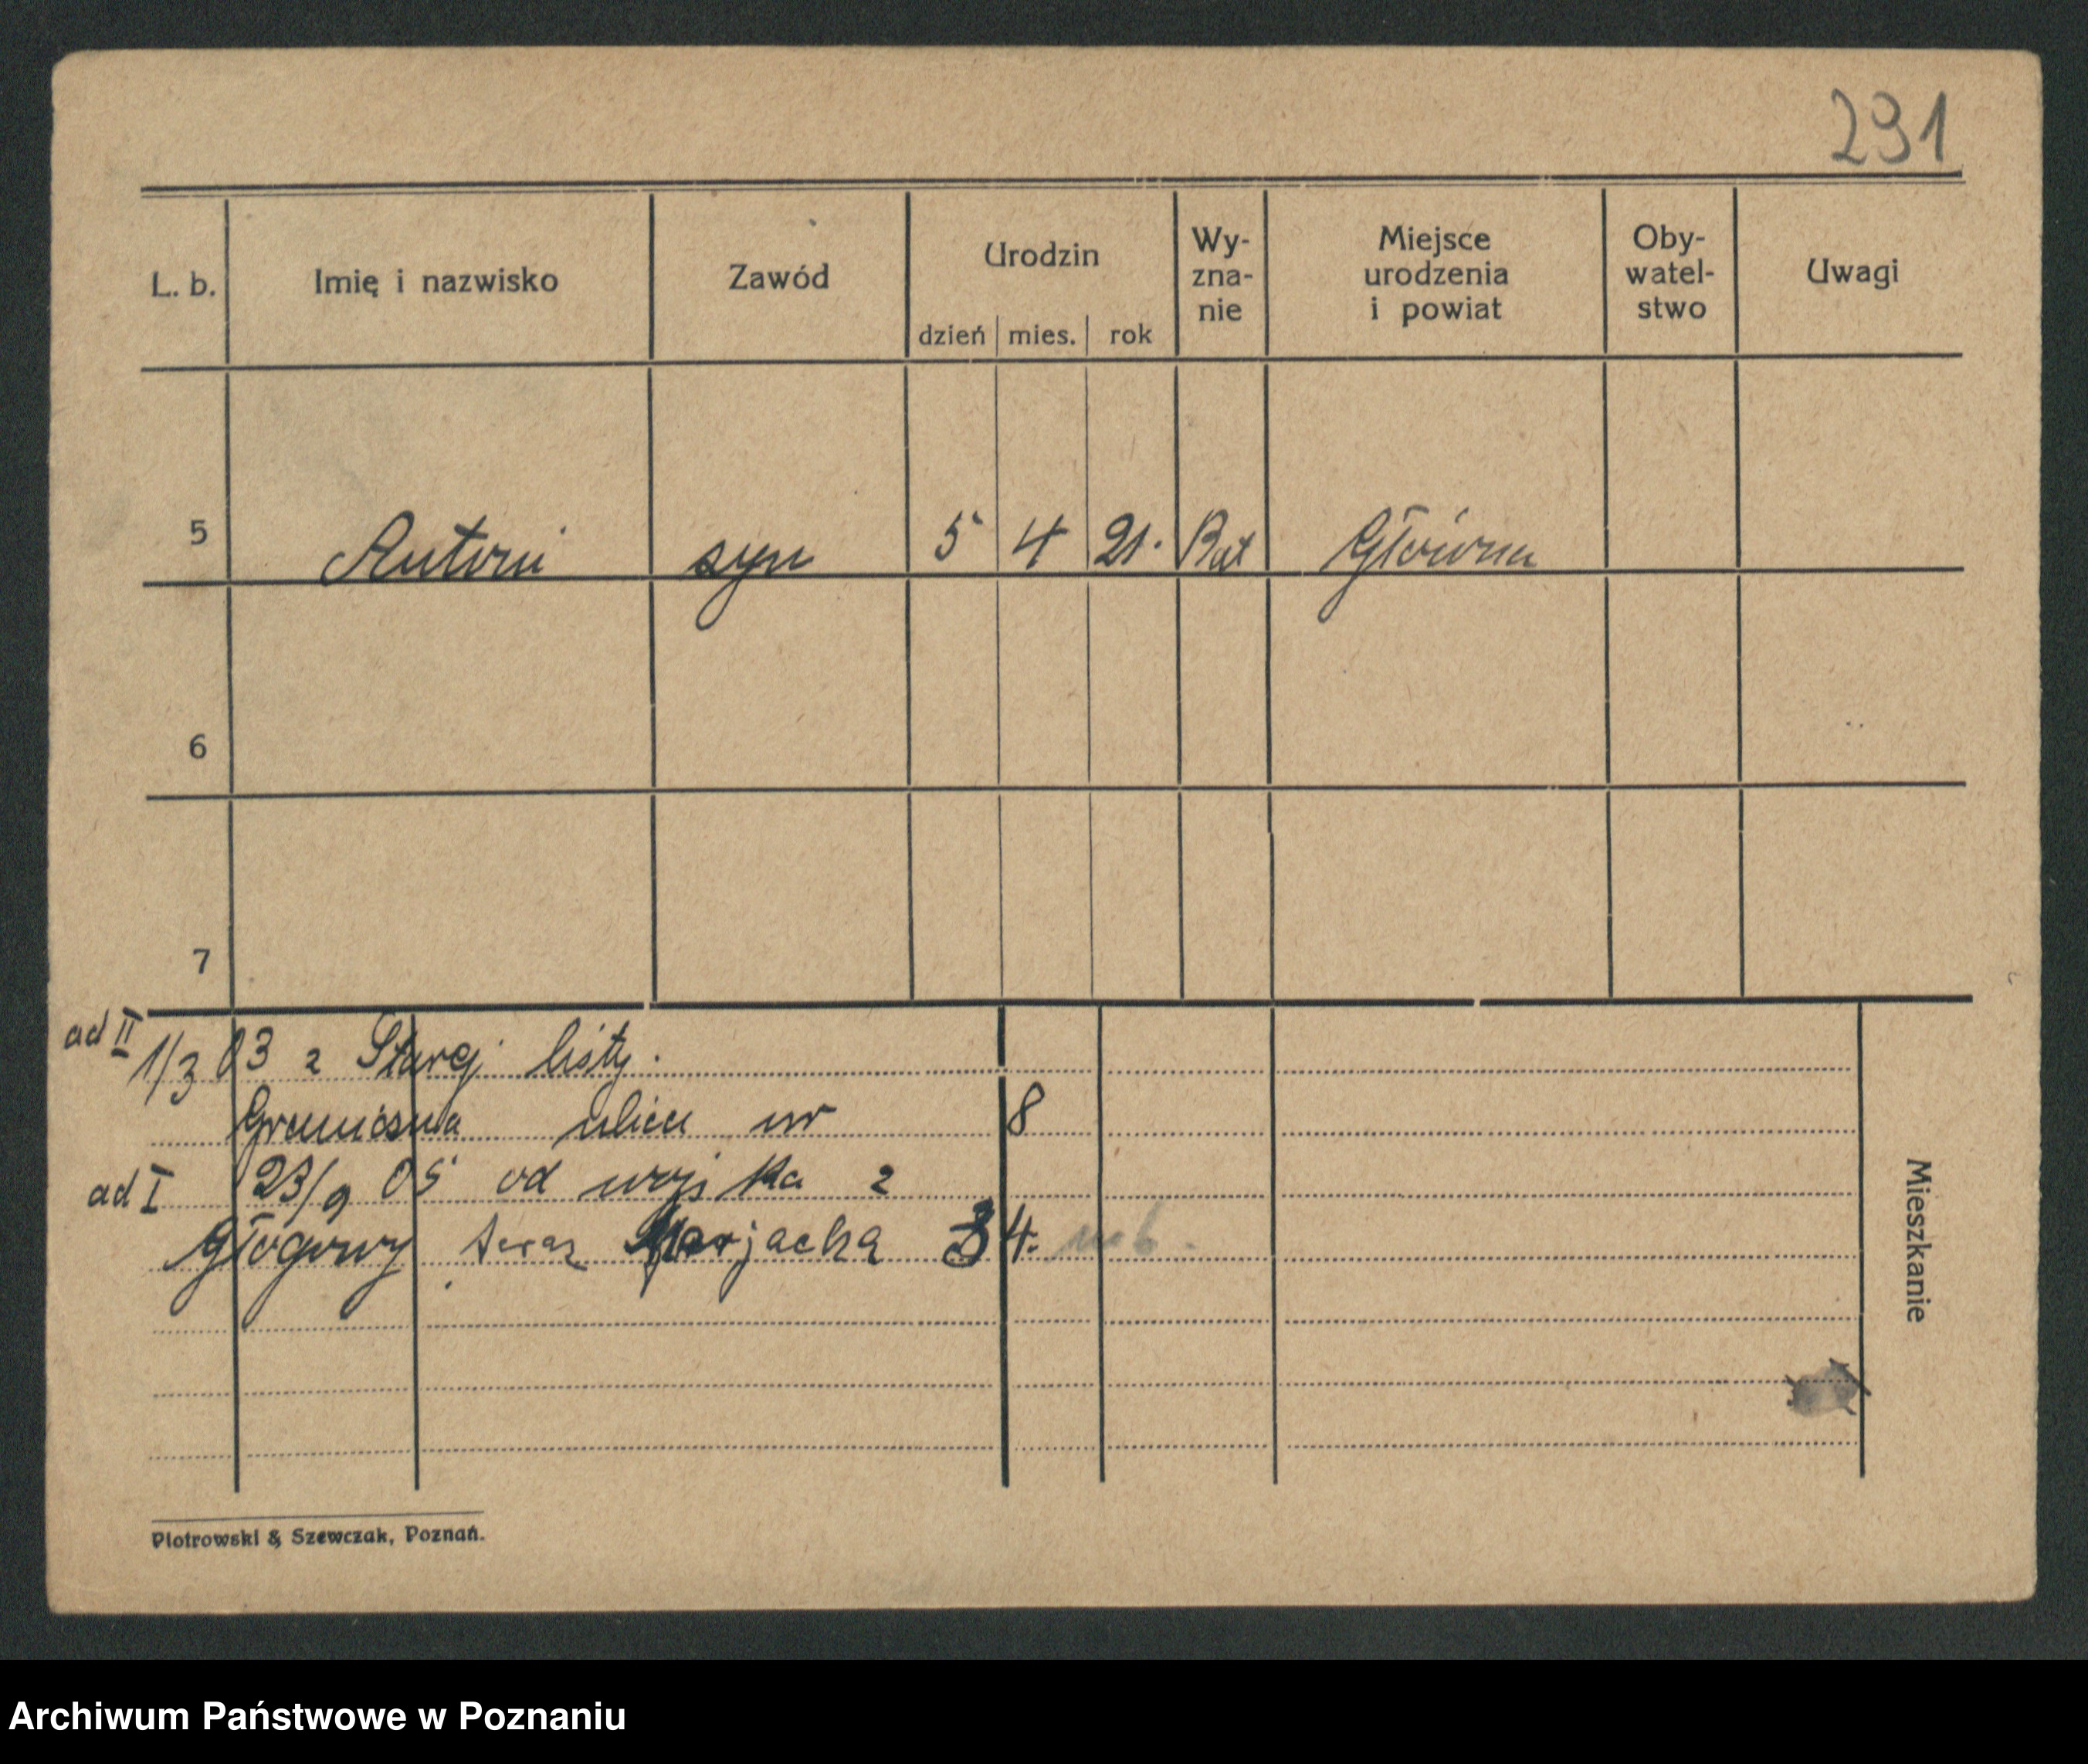 291
L. b. Imię i nazwisko Zawód Urodzin dzień mies. rok Wy-zna-nie Miejsce urodzenia i powiat Oby-watel-stwo Uwagi
5 Antoni syn 5 4 21. Kat Główna
6
7
ad II 1/3 03 z Starej listy.
Graniczna ulica nr 8
ad I 23/9 05 od wojska z
Głogowy teraz Marjacka 34.
Mieszkanie
Piotrowski & Szewczak, Poznań.
Archiwum Państwowe w Poznaniu